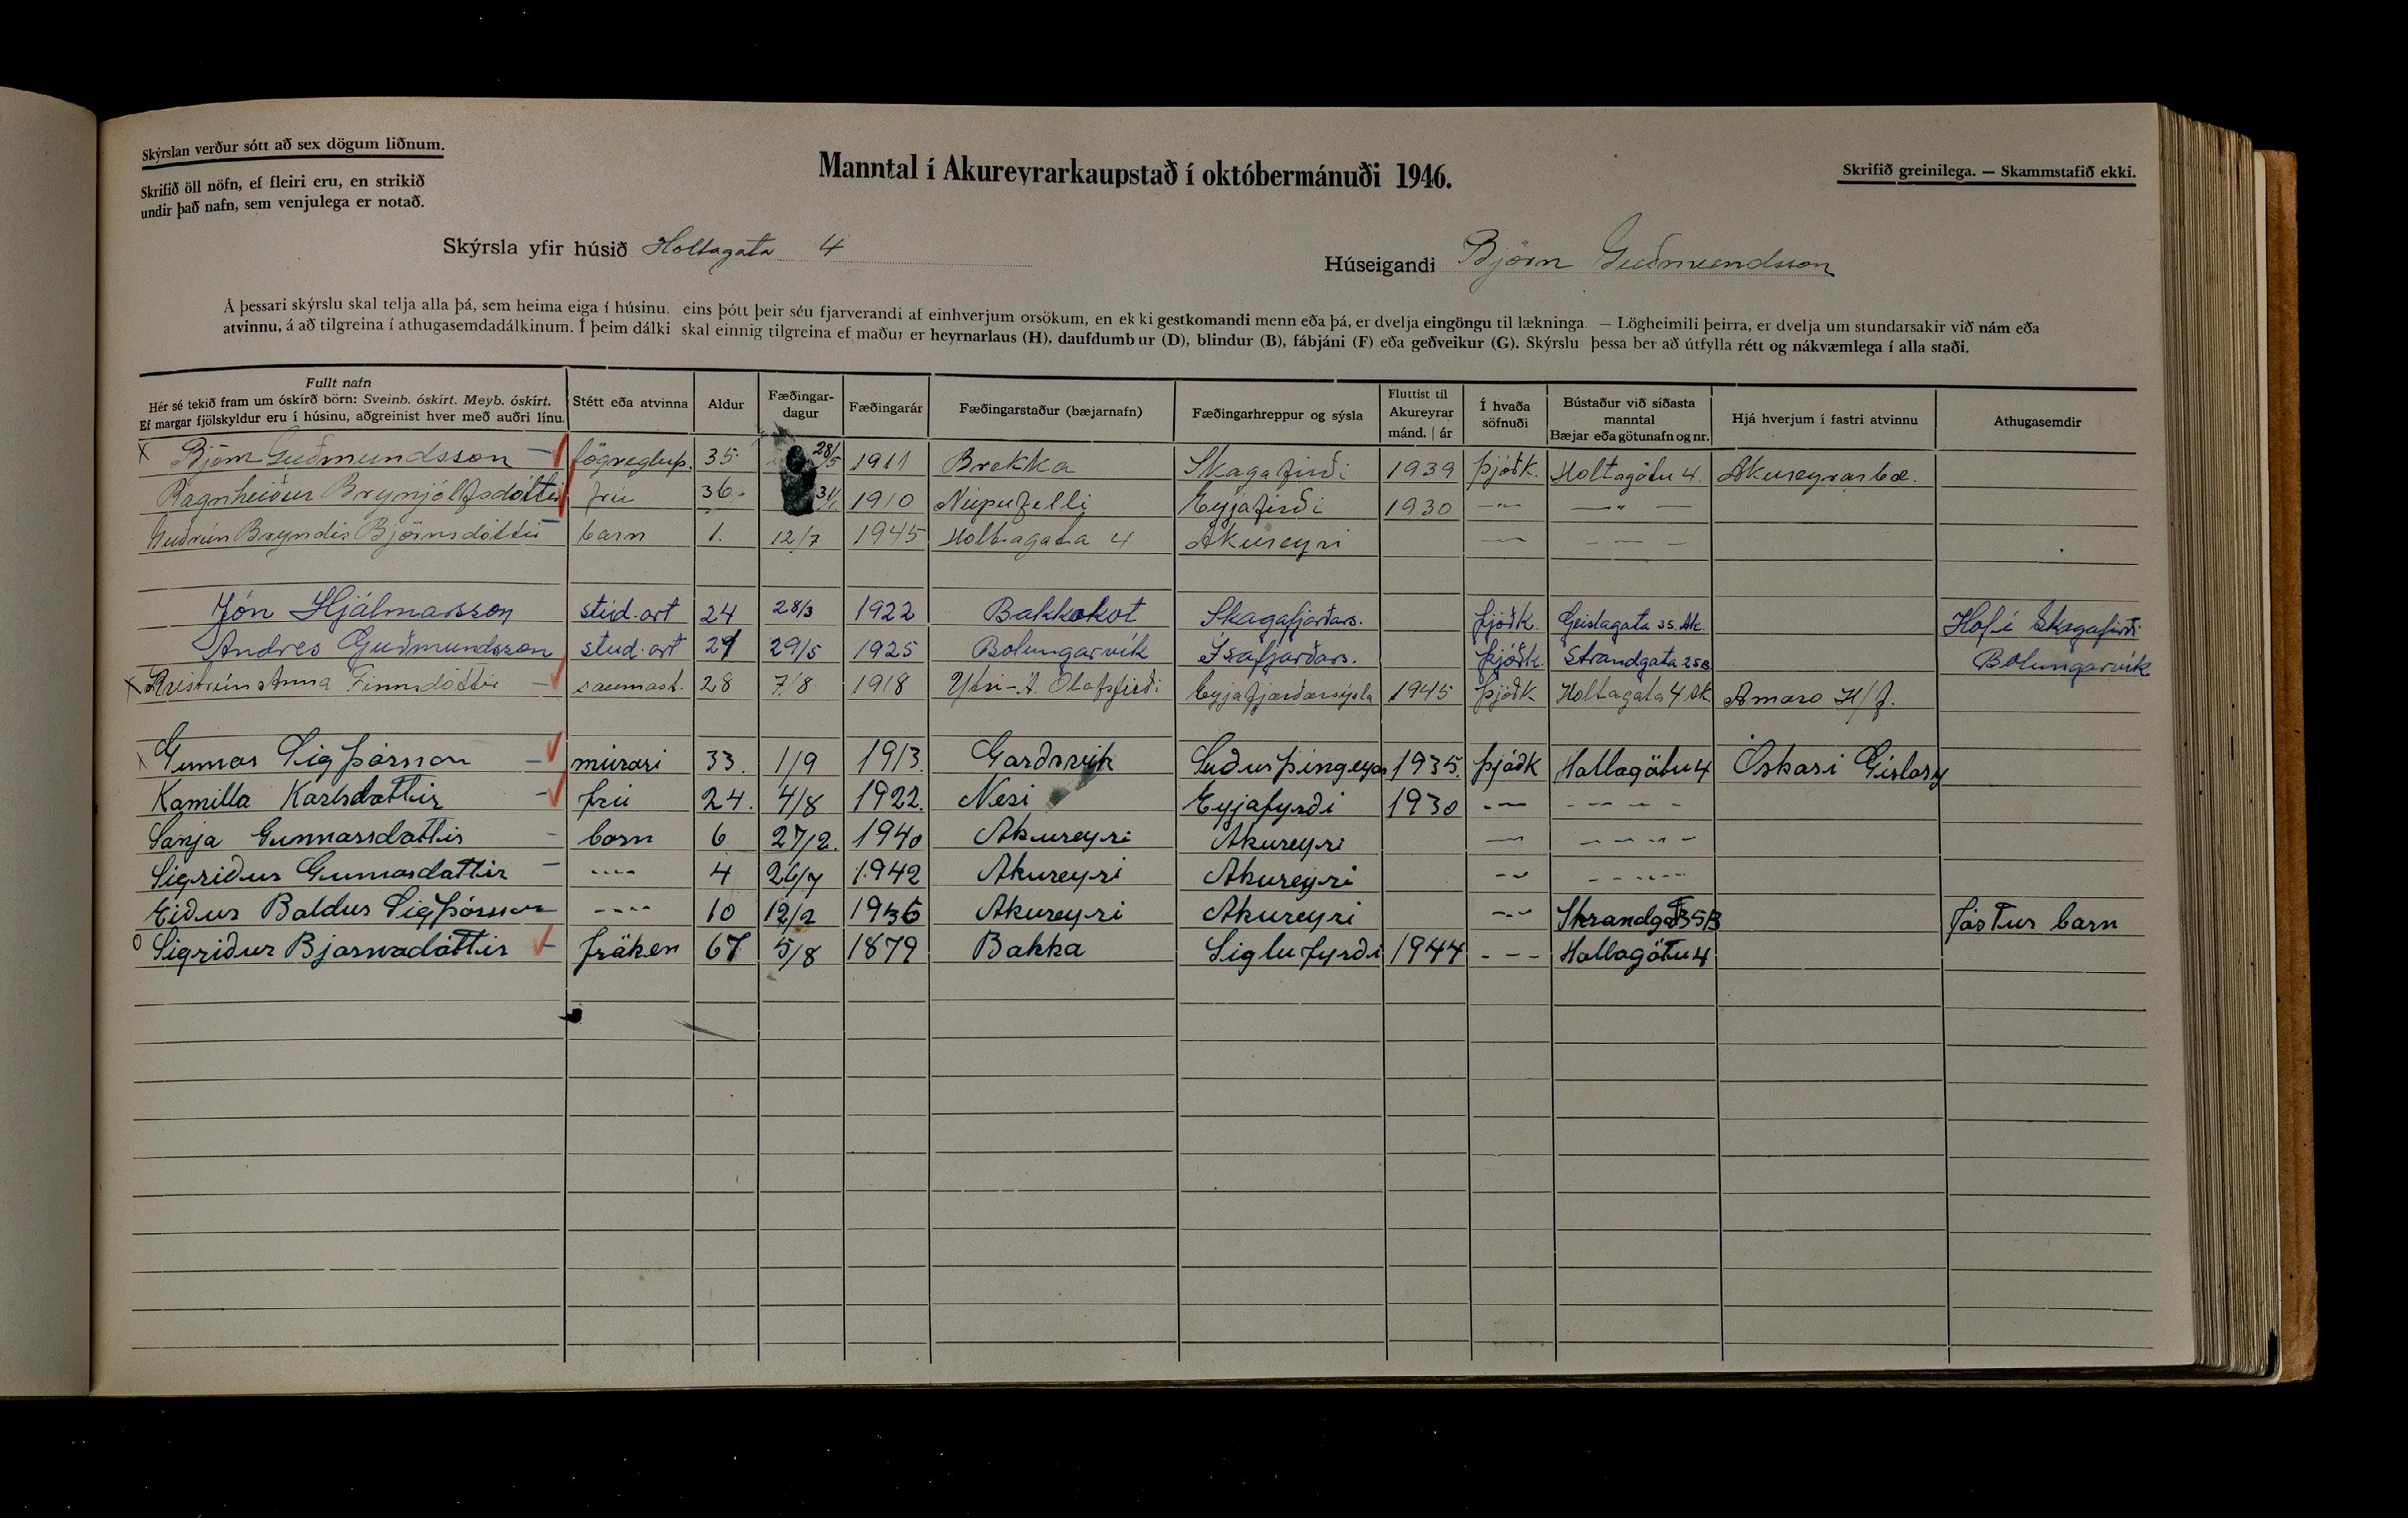 Skýrslan verður sótt að sex dögum liðnum.
Skrifið öll nöfn, ef fleiri eru, en strikið
undir það nafn, sem venjulega er notað.
Manntal í Akureyrarkaupstað í októbermánuði 1946.
Skrifið greinilega. — Skammstafið ekki.
Skýrsla yfir húsið Holtagata 4
Húseigandi Björn Guðmundsson
Á þessari skýrslu skal telja alla þá, sem heima eiga í húsinu, eins þótt þeir séu fjarverandi af einhverjum orsökum, en ekki gestkomandi menn eða þá, er dvelja eingöngu til lækninga. — Lögheimili þeirra, er dvelja um stundarsakir við nám eða
atvinnu, á að tilgreina í athugasemdadálkinum. Í þeim dálki skal einnig tilgreina ef maður er heyrnarlaus (H), daufdumbur (D), blindur (B), fábjáni (F) eða geðveikur (G). Skýrslu þessa ber að útfylla rétt og nákvæmlega í alla staði.
Fullt nafn
Hér sé tekið fram um óskírð börn: Sveinb. óskírt. Meyb. óskírt.
Ef margar fjölskyldur eru í húsinu, aðgreinist hver með auðri línu.
Stétt eða atvinna
Aldur
Fæðingar-
dagur
Fæðingarár
Fæðingarstaður (bæjarnafn)
Fæðingarhreppur og sýsla
Fluttist til
Akureyrar
mánd. | ár
Í hvaða
söfnuði
Bústaður við síðasta
manntal
Bæjar eða götunafn og nr.
Hjá hverjum í fastri atvinnu
Athugasemdir
x Björn Guðmundsson lögreglup. 35 28/5 1911 Brekka Skagafirði 1939 þjóðk. Holtagötu 4. Akureyrarbæ.
Ragnheiður Brynjólfsdóttir frú 36. 31/1 1910 Núpufelli Eyjafirði 1930 —"— —"—
Guðrún Bryndís Björnsdóttir barn 1. 12/7 1945 Holtagata 4 Akureyri — — — —
Jón Hjálmarsson stúd. art 24 28/3 1922 Bakkakot Skagafjarðars. þjóðk. Geislagata 35. Ak. Hof í Skagafirði
Andres Guðmundsson stud. art 21 29/5 1925 Bolungarvík Ísafjarðars. þjóðk. Strandgata 25B Bolungarvík
x Kristrún Anna Finnsdóttir saumast. 28 7/8 1918 Ytri-Á. Ólafsfirði Eyjafjarðarsýsla 1945 þjóðk Holtagata 4 Ak Amaro H/f.
x Gunnar Sigþórsson múrari 33. 1/9 1913. Garðsvík Suðurþingeyar 1935. þjóðk Holtagötu 4 Óskari Gíslasy
Kamilla Karlsdottir frú 24. 4/8 1922. Nesi Eyjafyrði 1930 --- - -- - -
Sanja Gunnarsdottir barn 6 27/2. 1940 Akureyri Akureyri — - -- - -
Sigriður Gunnarsdottir ---- 4 26/7 1942 Akureyri Akureyri --- - ----
Eiður Baldur Sigþórsson ---- 10 12/2 1936 Akureyri Akureyri --- Strandgat 35B Fóstur barn
o Sigriður Bjarnadóttir fröken 67 5/8 1879 Bakka Siglufyrði 1944 - - - Holtagötu 4